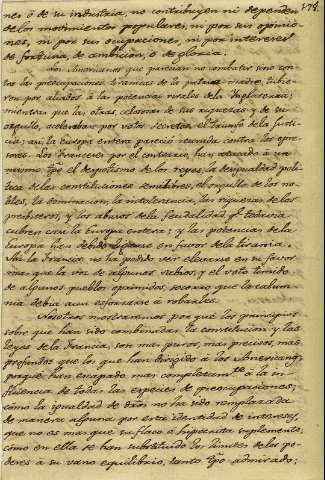 174.
nes ó de su industria, no contribuyen ni dependen
de los movimientos populares, ni por sus opinio-
nes, ni por sus ocupaciones, ni por intereses
de fortuna, de ambicion, ó de gloria.
Los Americanos que parecian no combatir sino con-
tra las preocupaciones tiranicas de la patria madre, tubie-
ron por aliados á las potencias rivales de la Inglaterra;
mientras que las otras, celosas de sus riquezas y de su
orgullo, aceleraban por votos secretos el triunfo de la justi-
cia; asi la Europa entera parecio reunida contra los opre-
sores. Los Franceses por el contrario, han atacado á un
mismo tpo el despotismo de los reyes, la desigualdad poli-
tica de las constituciones semilibres, el orgullo de los no-
bles, la dominacion, la intolerancia, las riquezas de los
presbiteros, y los abusos de la feudalidad qe todavia
cubren casi la Europa entera; y las potencias de la
Europa han debido en favor de la tirania.
Asi la Francia no ha podido ver elevarse en su favor
mas que la voz de algunos sabios, y el voto timido
de algunos pueblos oprimidos, socorros que la calum-
nia debia aun esforzarse á robarles.
Nosotros mostraremos por que los principios
sobre que han sido combinadas la constitucion y las
leyes de la Francia, son mas puros, mas precisos, mas
profundos que los que han dirigido á los Americanos;
porque han escapado mas completamente á la in-
fluencia de todas las especies de preocupaciones;
como la igualdad de dros no ha sido remplazada
de manera alguna por esta identidad de intereses,
que no es mas que su flaco é hipocrita suplemento;
como en ella se han substituido los limites de los po-
deres á su vano equilibrio, tanto tpo admirado;